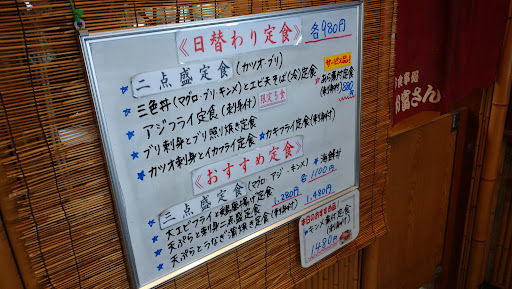 《日替わり定食》 各980円
二点盛定食(カツオ・ブリ)
サービス品!
三色丼(マグロ・ブリ・キンメ)とエビ天そば(冷)定食
あら煮付定食(刺身付) 880円
アジフライ定食(刺身付) 限定5食
ブリ刺身とブリ照り焼き定食
カキフライ定食(刺身付)
カツオ刺身とイカフライ定食
《おすすめ定食》
三点盛定食(マグロ・アジ・キンメ)
海鮮丼
各1100円
1,280円 1,480円
大エビフライと鶏唐揚げ定食
天ぷらと刺身二点盛定食
天ぷらとうなぎ蒲焼き定食(刺身付)
本日のおすすめ品!
キンメ煮付定食(刺身付)
1480円